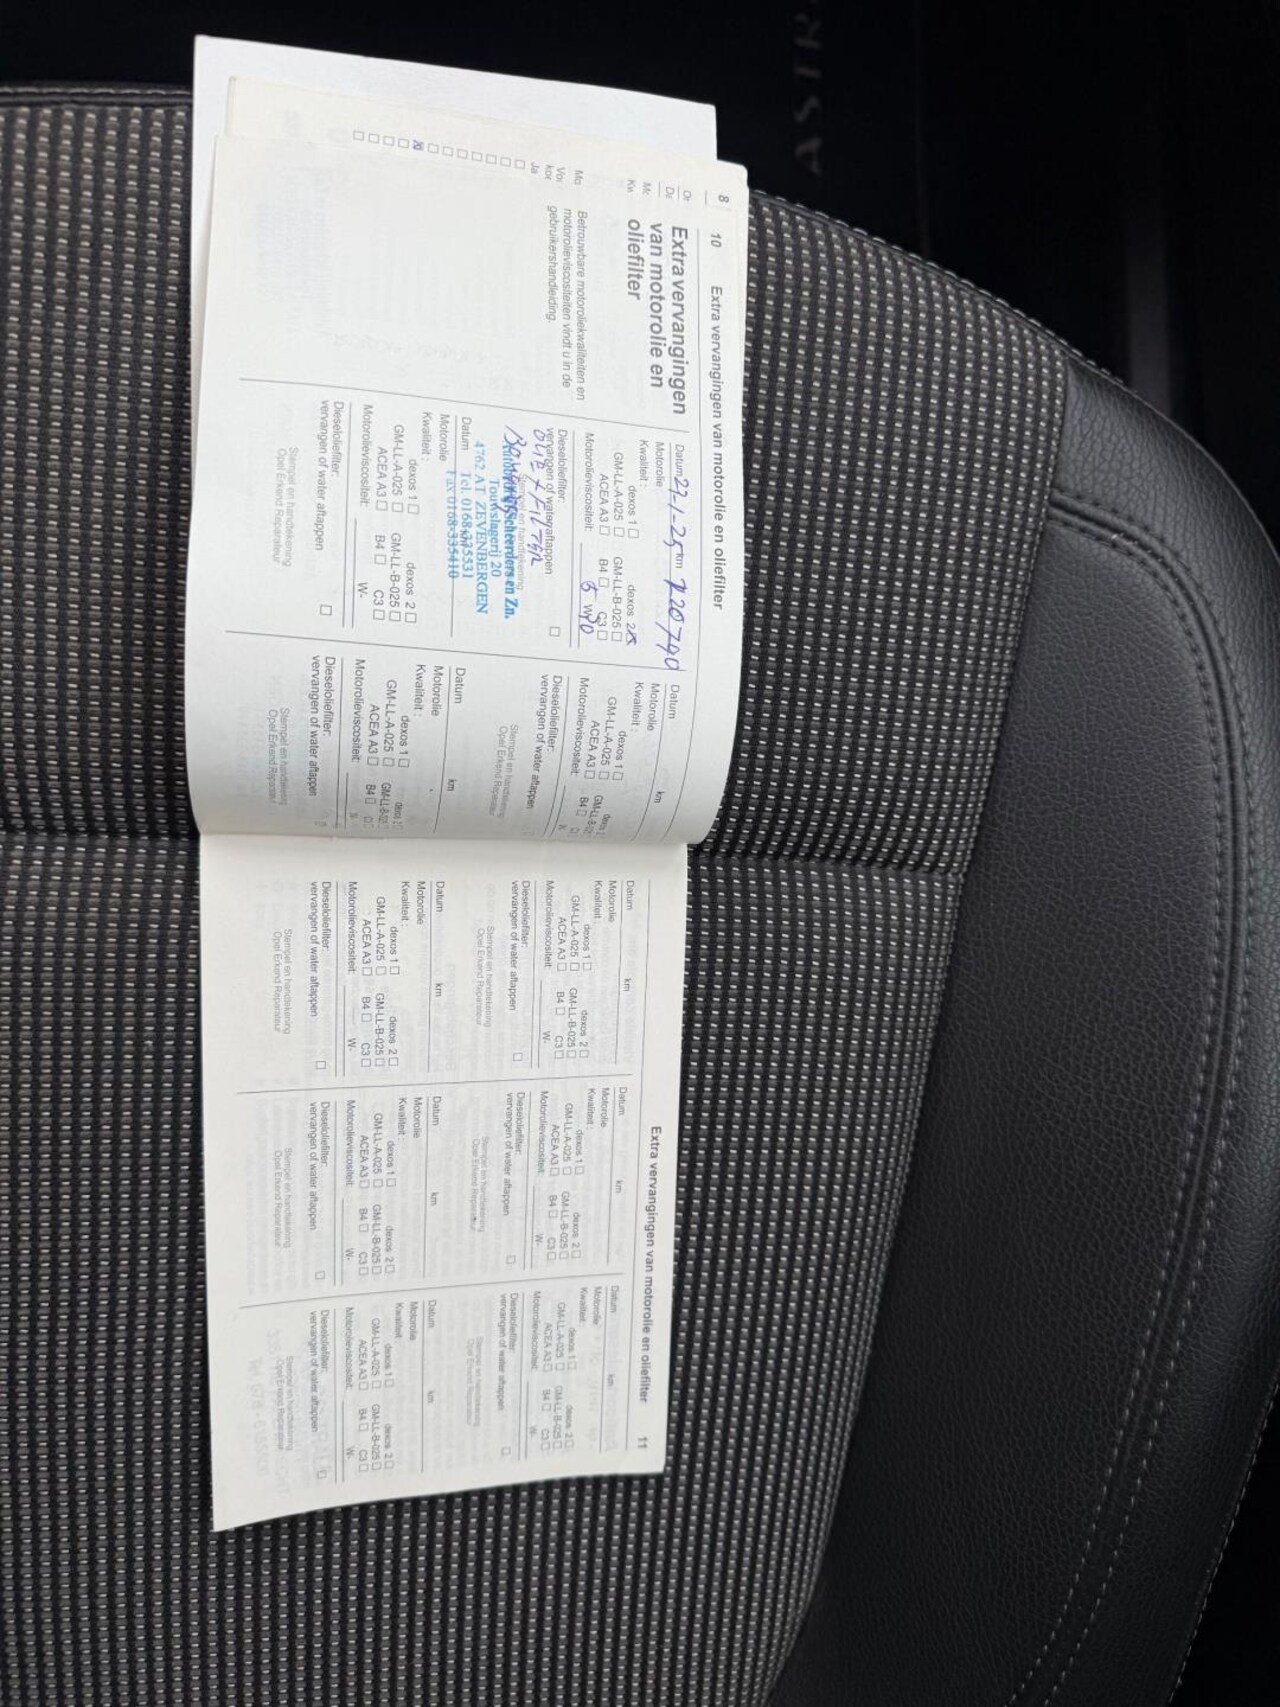 ASTR
8
Or
Da
Mo
Kw
Mo
Vor
kor
Ja
10 Extra vervangingen van motorolie en oliefilter
Extra vervangingen
van motorolie en
oliefilter
Betrouwbare motoroliekwaliteiten en
motorolieviscositeiten vindt u in de
gebruikershandleiding.
Datum 21-1-25 km 120740
Motorolie
Kwaliteit :
dexos 1 dexos 2
GM-LL-A-025 GM-LL-B-025
ACEA A3 B4 C3
Motorolieviscositeit: 5 W-30
Dieseloliefilter:
vervangen of water aftappen
OLIE + FILTER
Stempel en handtekening
Autobedrijf Scheerders en Zn.
Touwslagerij 20
4762 AT ZEVENBERGEN
Tel. 0168-335531
Fax 0168-335410
Datum km
Motorolie
Kwaliteit :
dexos 1 dexos 2
GM-LL-A-025 GM-LL-B-025
ACEA A3 B4 C3
Motorolieviscositeit: W-
Dieseloliefilter:
vervangen of water aftappen
Stempel en handtekening
Opel Erkend Reparateur
Datum km
Motorolie
Kwaliteit :
dexos 1 dexos 2
GM-LL-A-025 GM-LL-B-025
ACEA A3 B4
Motorolieviscositeit:
Dieseloliefilter:
vervangen of water aftappen
Stempel en handtekening
Opel Erkend Reparateur
Datum km
Motorolie
Kwaliteit :
dexos 1 dexos 2
GM-LL-A-025 GM-LL-B-025
ACEA A3 B4
Motorolieviscositeit:
Dieseloliefilter:
vervangen of water aftappen
Stempel en handtekening
Opel Erkend Reparateur
Extra vervangingen van motorolie en oliefilter 11
Datum km
Motorolie
Kwaliteit :
dexos 1 dexos 2
GM-LL-A-025 GM-LL-B-025
ACEA A3 B4 C3
Motorolieviscositeit: W-
Dieseloliefilter:
vervangen of water aftappen
Stempel en handtekening
Opel Erkend Reparateur
Datum km
Motorolie
Kwaliteit :
dexos 1 dexos 2
GM-LL-A-025 GM-LL-B-025
ACEA A3 B4 C3
Motorolieviscositeit: W-
Dieseloliefilter:
vervangen of water aftappen
Stempel en handtekening
Opel Erkend Reparateur
Datum km
Motorolie
Kwaliteit :
dexos 1 dexos 2
GM-LL-A-025 GM-LL-B-025
ACEA A3 B4 C3
Motorolieviscositeit: W-
Dieseloliefilter:
vervangen of water aftappen
Stempel en handtekening
Opel Erkend Reparateur
Datum km
Motorolie
Kwaliteit :
dexos 1 dexos 2
GM-LL-A-025 GM-LL-B-025
ACEA A3 B4 C3
Motorolieviscositeit: W-
Dieseloliefilter:
vervangen of water aftappen
Stempel en handtekening
Opel Erkend Reparateur
Datum km
Motorolie
Kwaliteit :
dexos 1 dexos 2
GM-LL-A-025 GM-LL-B-025
ACEA A3 B4 C3
Motorolieviscositeit: W-
Dieseloliefilter:
vervangen of water aftappen
Stempel en handtekening
Opel Erkend Reparateur
Datum km
Motorolie
Kwaliteit :
dexos 1 dexos 2
GM-LL-A-025 GM-LL-B-025
ACEA A3 B4 C3
Motorolieviscositeit: W-
Dieseloliefilter:
vervangen of water aftappen
Stempel en handtekening
Opel Erkend Reparateur